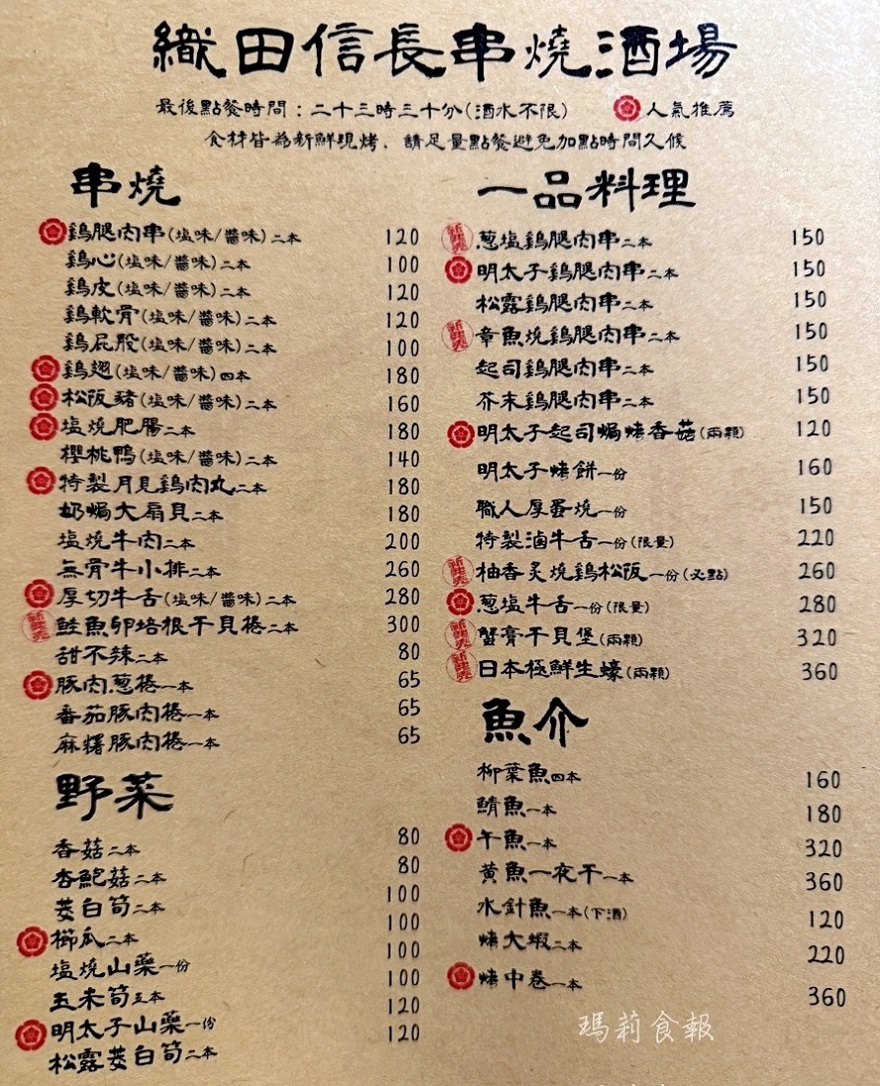 織田信長串燒酒場
最後點餐時間：二十三時三十分(酒水不限)
人氣推薦
食材皆為新鮮現烤，請足量點餐避免加點時間久候
串燒
鷄腿肉串(塩味/醬味)二本 120
鷄心(塩味/醬味)二本 100
鷄皮(塩味/醬味)二本 120
鷄軟骨(塩味/醬味)二本 120
鷄屁股(塩味/醬味)二本 100
鷄翅(塩味/醬味)四本 180
松阪豬(塩味/醬味)二本 160
塩燒肥腸二本 180
櫻桃鴨(塩味/醬味)二本 140
特製月見鷄肉丸二本 180
奶焗大扇貝二本 180
塩燒牛肉二本 200
無骨牛小排二本 260
厚切牛舌(塩味/醬味)二本 280
鮭魚卵培根干貝捲二本 300
甜不辣二本 80
豚肉葱捲一本 65
番茄豚肉捲一本 65
麻糬豚肉捲一本 65
野菜
香菇二本 80
杏鮑菇二本 80
茭白筍二本 100
櫛瓜二本 100
塩燒山藥一份 100
玉米筍五本 100
明太子山藥一份 120
松露茭白筍二本 120
一品料理
葱塩鷄腿肉串二本 150
明太子鷄腿肉串二本 150
松露鷄腿肉串二本 150
章魚燒鷄腿肉串二本 150
起司鷄腿肉串二本 150
芥末鷄腿肉串二本 150
明太子起司焗烤香菇(兩顆) 120
明太子烤餅一份 160
職人厚蛋燒一份 150
特製滷牛舌一份(限量) 220
柚香炙燒鷄松阪一份(必點) 260
葱塩牛舌一份(限量) 280
蟹膏干貝堡(兩顆) 320
日本極鮮生蠔(兩顆) 360
魚介
柳葉魚四本 160
鯖魚一本 180
午魚一本 320
黃魚一夜干一本 360
水針魚一本(下酒) 120
烤大蝦二本 220
烤中卷一本 360
瑪莉食報